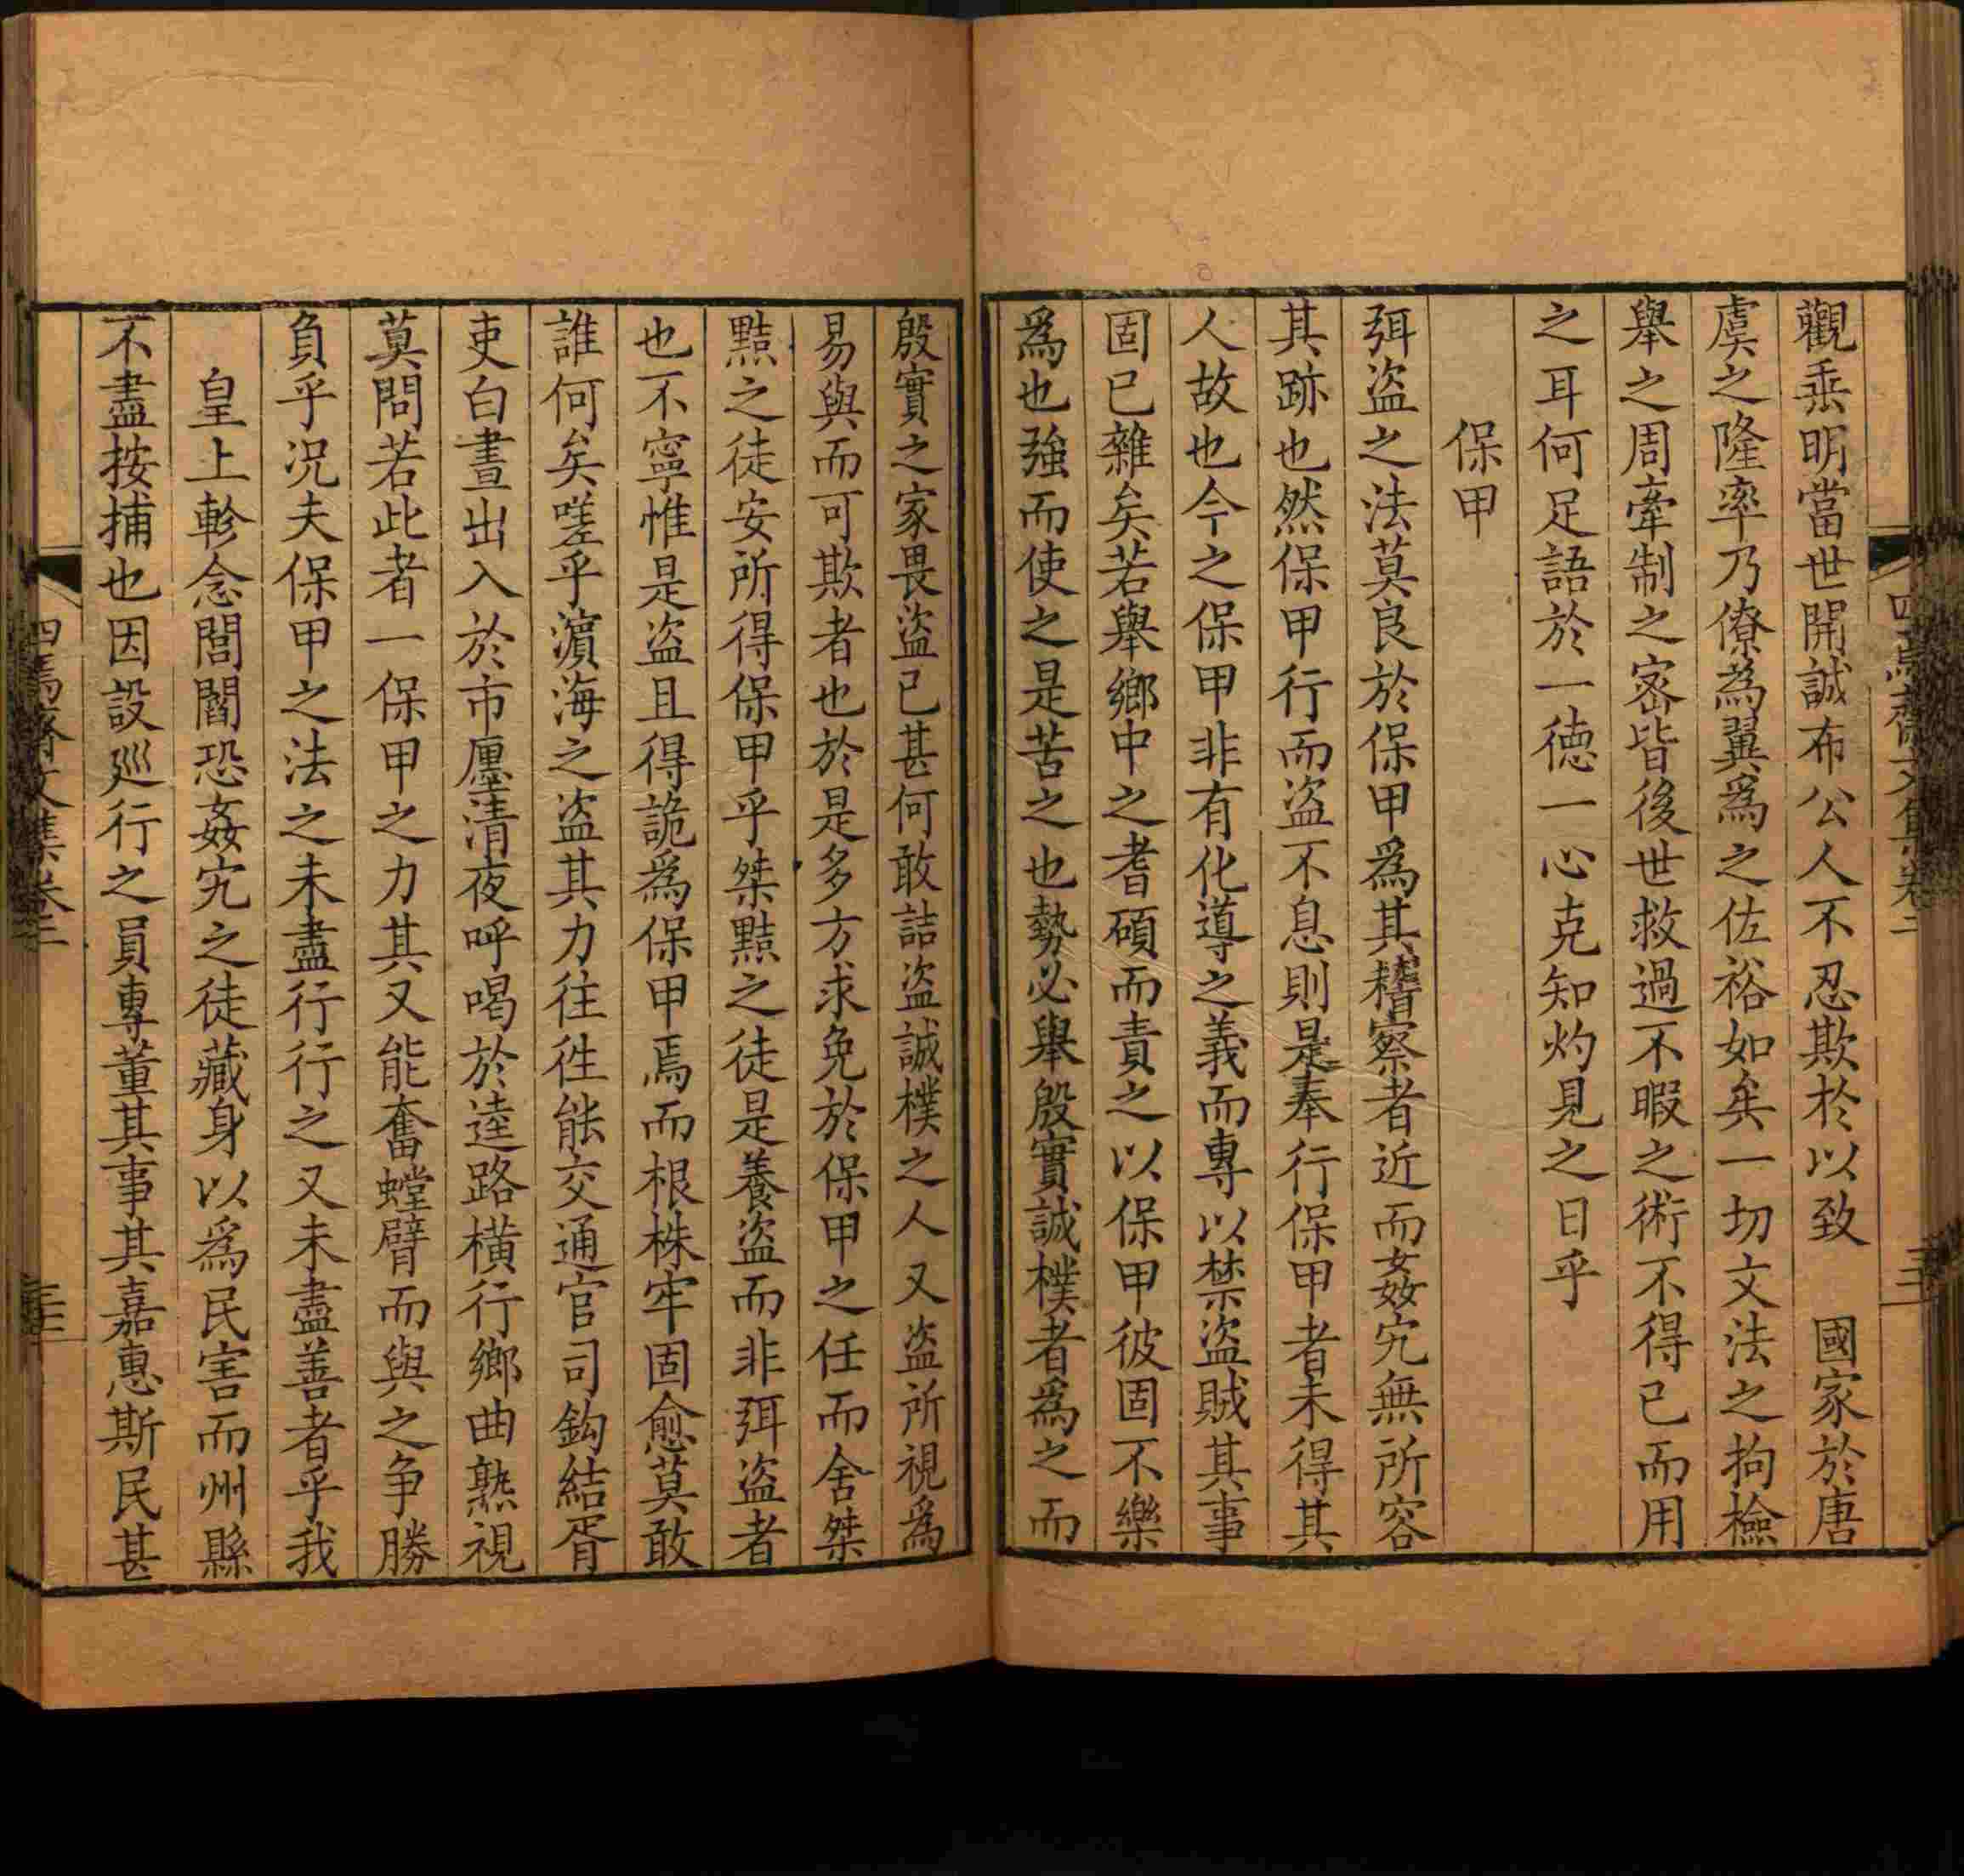 觀乗明當世開誠布公人不忍欺於以致　國家於唐
虞之隆率乃僚為翼爲之佐裕如矣一切文法之拘檢
舉之周牽制之密皆後世救過不暇之術不得已而用
之耳何足語於一德一心克知灼見之日乎
保甲
弭盜之法莫良於保甲爲其稽察者近而姦宄無所容
其跡也然保甲行而盜不息則是奉行保甲者未得其
人故也今之保甲非有化導之義而專以禁盜賊其事
固已雜矣若舉鄉中之耆碩而責之以保甲彼固不樂
爲也強而使之是苦之也勢必舉殷實誠樸者爲之而
殷實之家畏盜已甚何敢詰盜誠樸之人又盜所視爲
易與而可欺者也於是多方求免於保甲之任而舍桀
黠之徒安所得保甲乎桀黠之徒是養盜而非弭盜者
也不寧惟是盜且得詭爲保甲焉而根株牢固愈莫敢
誰何矣嗟乎濵海之盜其力往徃能交通官司鈎結胥
吏白晝出入於市廛清夜呼喝於逵路橫行鄉曲熟視
莫問若此者一保甲之力其又能奮螳臂而與之争勝
負乎况夫保甲之法之未盡行行之又未盡善者乎我
皇上軫念閭閻恐姦宄之徒藏身以爲民害而州縣
不盡按捕也因設廵行之員專董其事其嘉惠斯民甚
四焉齋文集卷二
四焉齋文集卷二